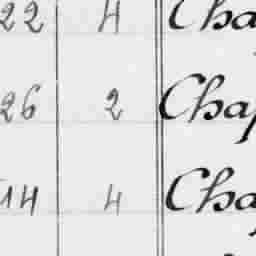 22 4 Cha
26 2 Chap
14 4 Cha